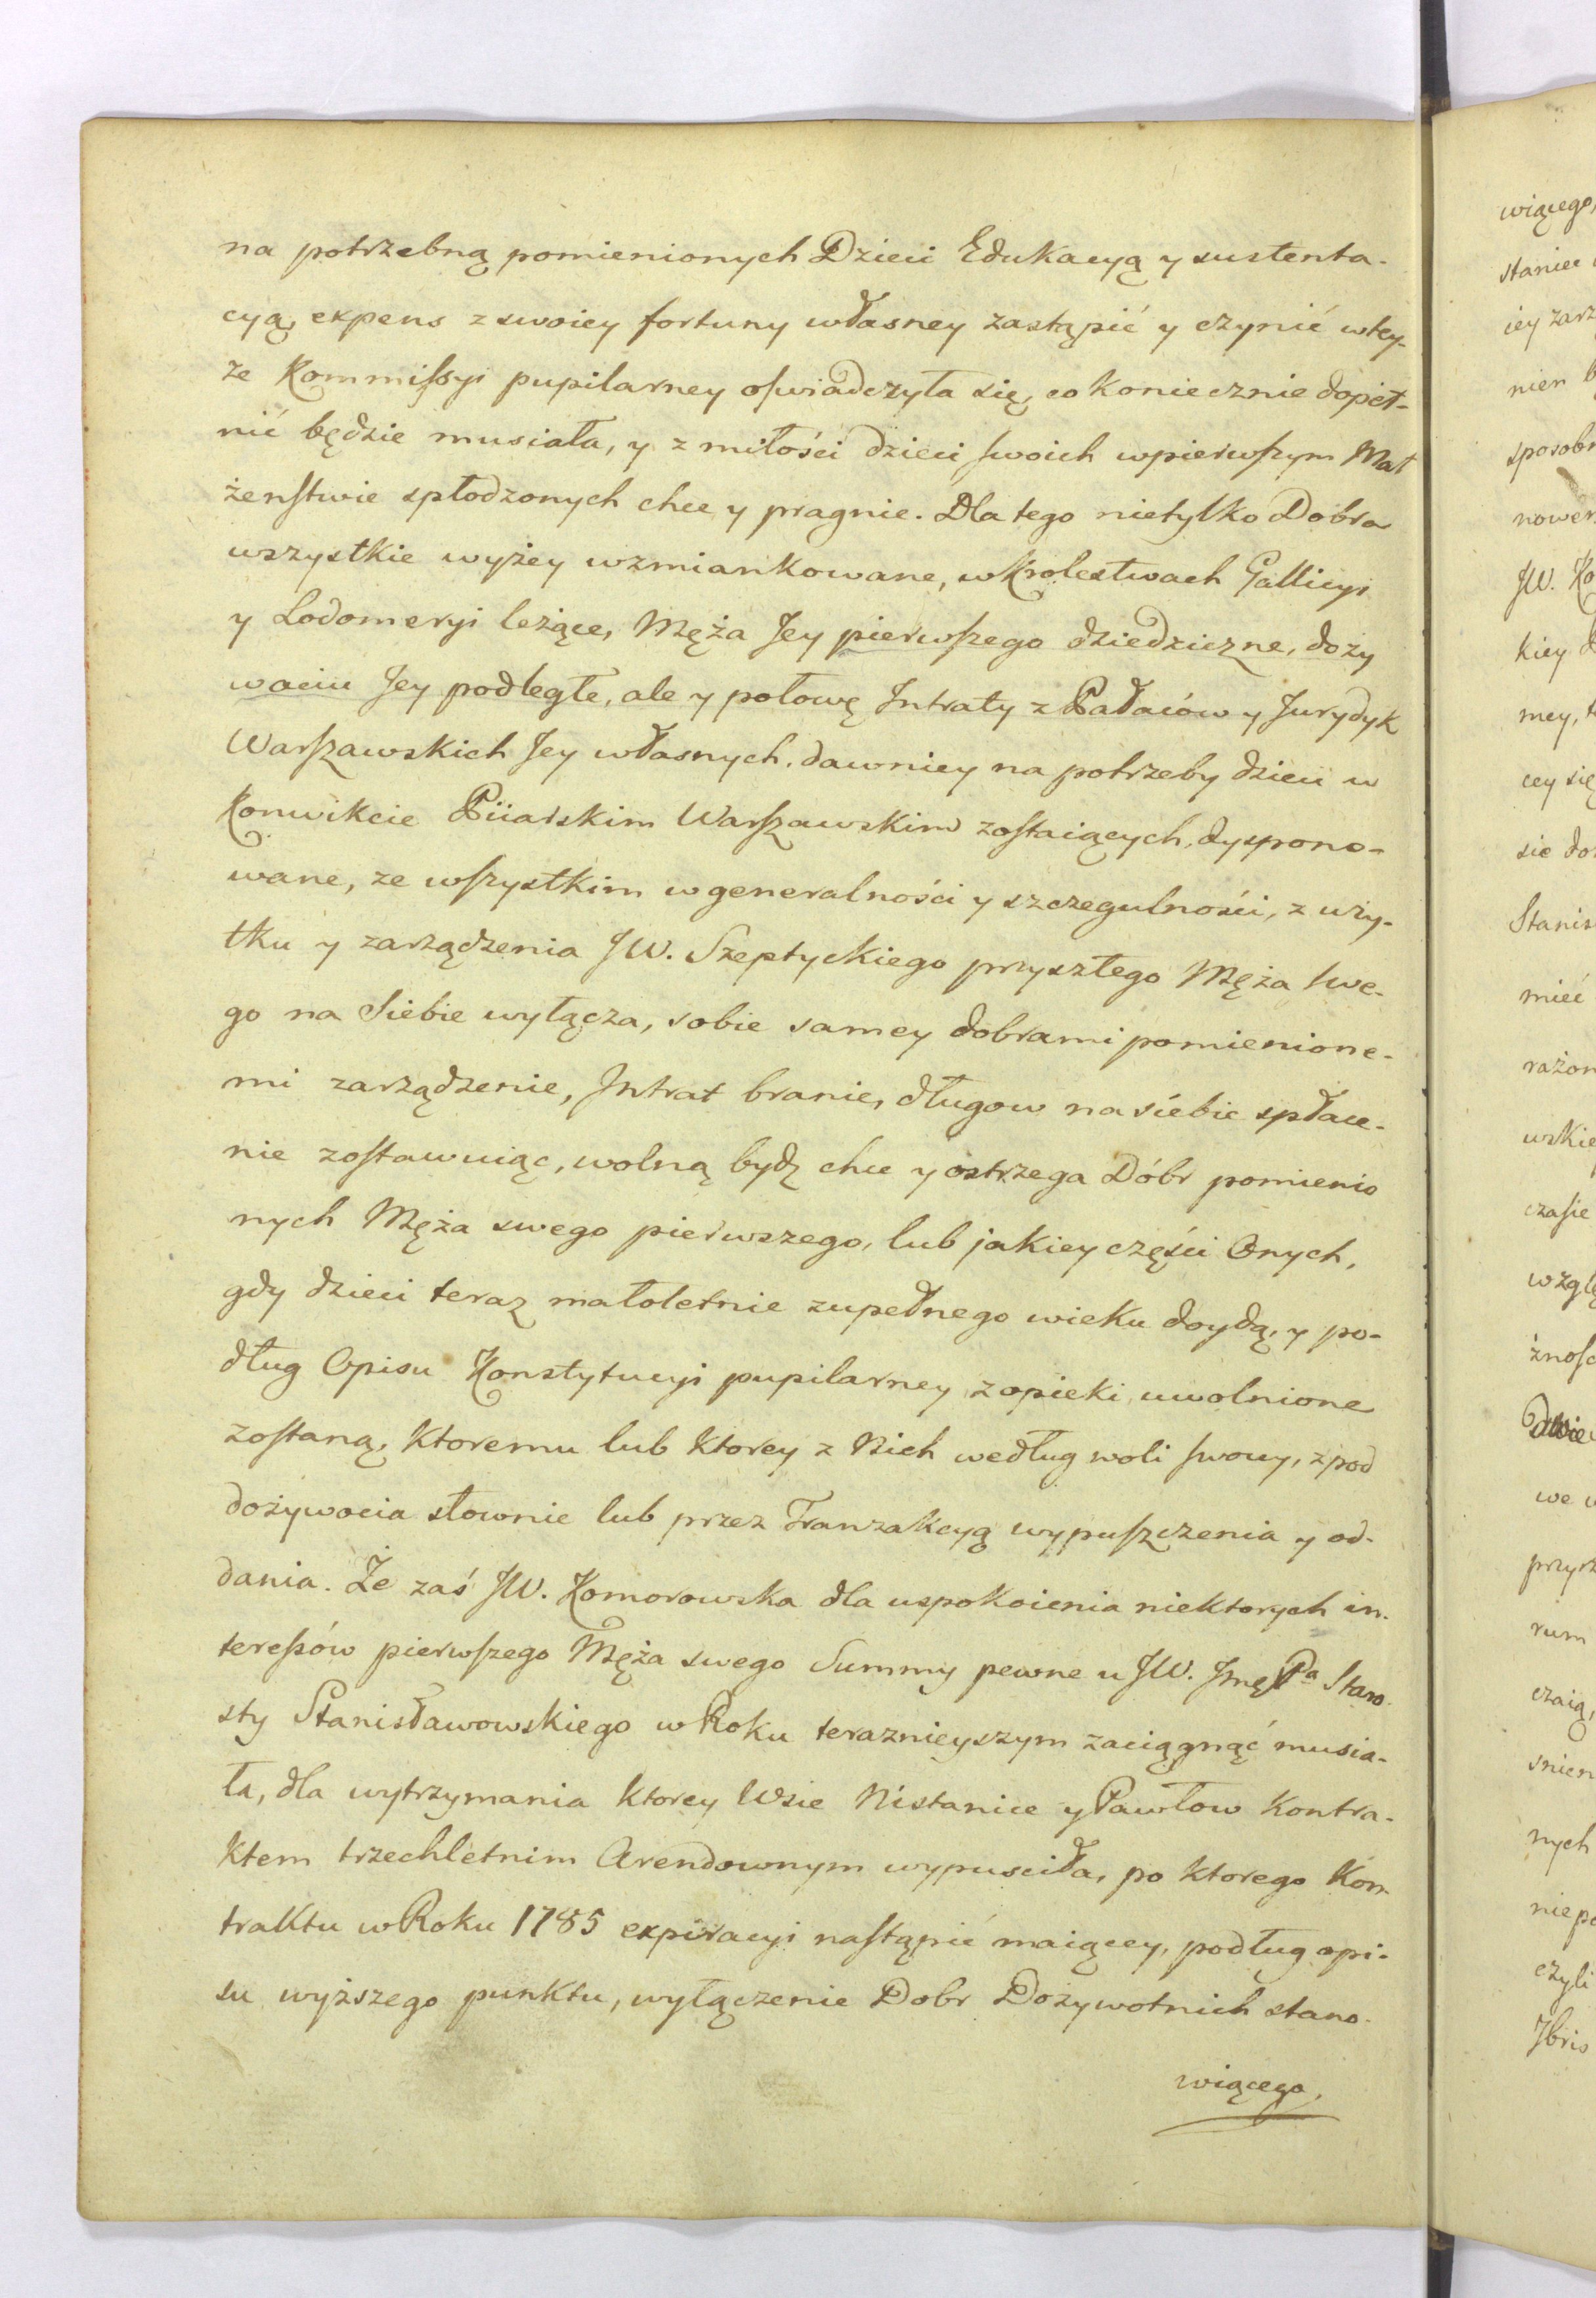 na potrzebną pomienionych Dzieci Edukacyą y sustenta-
cyą, expens z swoiey fortuny własney zastąpić y czynić wtey-
że Kommissyi pupilarney oswiadczyła się, co koniecznie dopeł-
nić będzie musiała, y z miłości dzieci swoich wpierwszym Mał
żenstwie spłodzonych chce y pragnie. Dla tego nietylko Dobra
wszystkie wyżey wzmiankowane, w Krolestwach Gallicyi
y Lodomeryi leżące, Męża Jey pierwszego dziedziczne, doży
wociu Jey podległe, ale y połowę Intraty z Pałaców y Jurydyk
Warszawskich Jey własnych, dawniey na potrzeby dzieci w
Konwikcie Piiarskim Warszawskim zostaiących, dyspono-
wane, ze wszystkim w generalności y szczegulności, z uży-
tku y zarządzenia JW. Szeptyckiego przyszłego Męża swe-
go na Siebie wyłącza, sobie samey dobrami pomienione-
mi zarządzenie, Intrat branie, długow na siebie spłace-
nie zostawuiąc, wolną bydź chce y ostrzega Dóbr pomienio
nych Męża swego pierwszego, lub jakiey części Onych,
gdy dzieci teraz małoletnie zupełnego wieku doydą, y po-
dług Opisu Konstytucyi pupilarney z opieki uwolnione
zostaną, ktoremu lub ktorey z Nich według woli swoiey, z pod
dożywocia słownie lub przez Tranzakcyą wypuszczenia y od-
dania. Że zaś JW. Komorowska dla uspokoienia niektorych in-
teressów pierwszego Męża swego Summy pewne u JW. Jmę Pa Staro-
sty Stanisławowskiego w Roku teraznieyszym zaciągnąć musia-
ła, dla wytrzymania ktorey Wsie Nistanice y Pawłow kontra-
ktem trzechletnim Arendownym wypusciła, po ktorego Kon-
traktu w Roku 1785 expiracyi nastąpić maiącey, podług opi-
su wyższego punktu, wyłączenie Dobr Dożywotnich stano-
wiącego,
wiącego,
staniec
iey zarz
nien
sposobn
nower
JW. Ko
kiey d
mey, t
cey się
sie do
Stanis
mieć
rażon
wskie
czasie
wzglę
żnosc
we w
przyrz
rum
czaią,
snien
nych
nie po
czyli